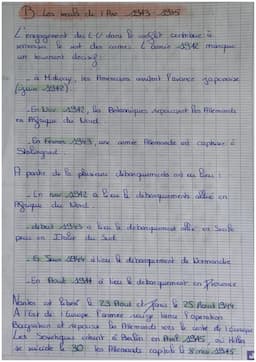 B) Les reculs de l'Axe 1943 - 1945
L'engagement des E.U dans le conflit contribue à
renverser le sort des armes. L'année 1942 marque
un tournant décisif :
- à Midway, les Américains arrêtent l'avance japonaise
(juin 1942).
- En Nov 1942, les Britanniques repoussent les Allemands
en Afrique du Nord.
- En Février 1943, une armée Allemande est capturée à
Stalingrad.
A partir de là plusieurs débarquements ont eu lieu :
- En nov 1942 a lieu le débarquement allié en
Afrique du Nord
- début 1943 a lieu le débarquement allié en Sicile
puis en Italie du Sud.
- 6 Juin 1944 a lieu le débarquement de Normandie
- En Août 1944 a lieu le débarquement en Provence
Nantes est libéré le 23 Août et Paris le 25 Août 1944
A l'Est de l'Europe l'armée rouge lance l'opération
Bagration et repousse les Allemands vers le centre de l'Europe
Les Soviétiques entrent à Berlin en Avril 1945, où Hitler
se suicide le 30. les Allemands capitule le 8 mai 1945